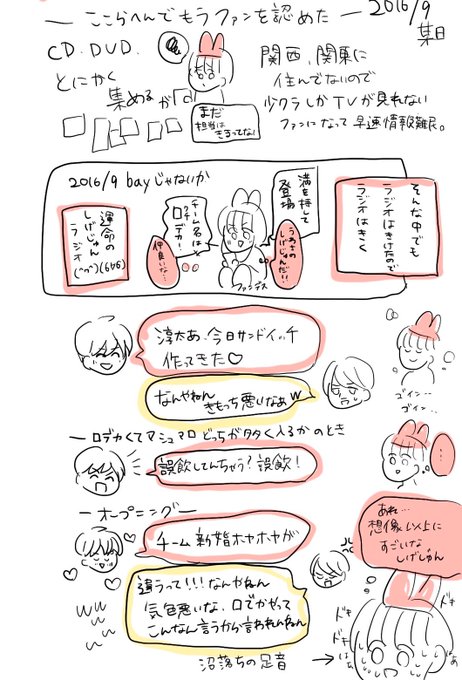 ー ここらへんでもうファンを認めた ー
2016/9
某日
CD.DVD.
とにかく
集めるが
まだ
担当は
きまってない
関西、関東に
住んでないので
少クラしかTVが見れない
ファンになって早速情報難民。
2016/9 bayじゃないか
運命の
しげじゅん
ラジオ
満を持して
登場
チーム名は
ロデカ!
仲良いな…
うわさの
しげじゅんだ!!
ファンデス
そんな中でも
ラジオはきけたので
ラジオはきく
淳太あ、今日サンドイッチ
作ってきた♡
なんやねん
きもっち悪いなあw
ゴイン…
ゴイン…
ー ロデカくてマシュマロどっちが多く入るかのとき
誤飲してんちゃう?誤飲!
…
ー オープニング ー
チーム新婚ホヤホヤが
違うって!!!なんやねん
気色悪いな、ロでかやって
こんなん言うから言われんねん
www
あれ…
想像以上に
すごいな
しげじゅん
ドキ
ドキ
ドキ
はぁ
はぁ
沼落ちの足音 →